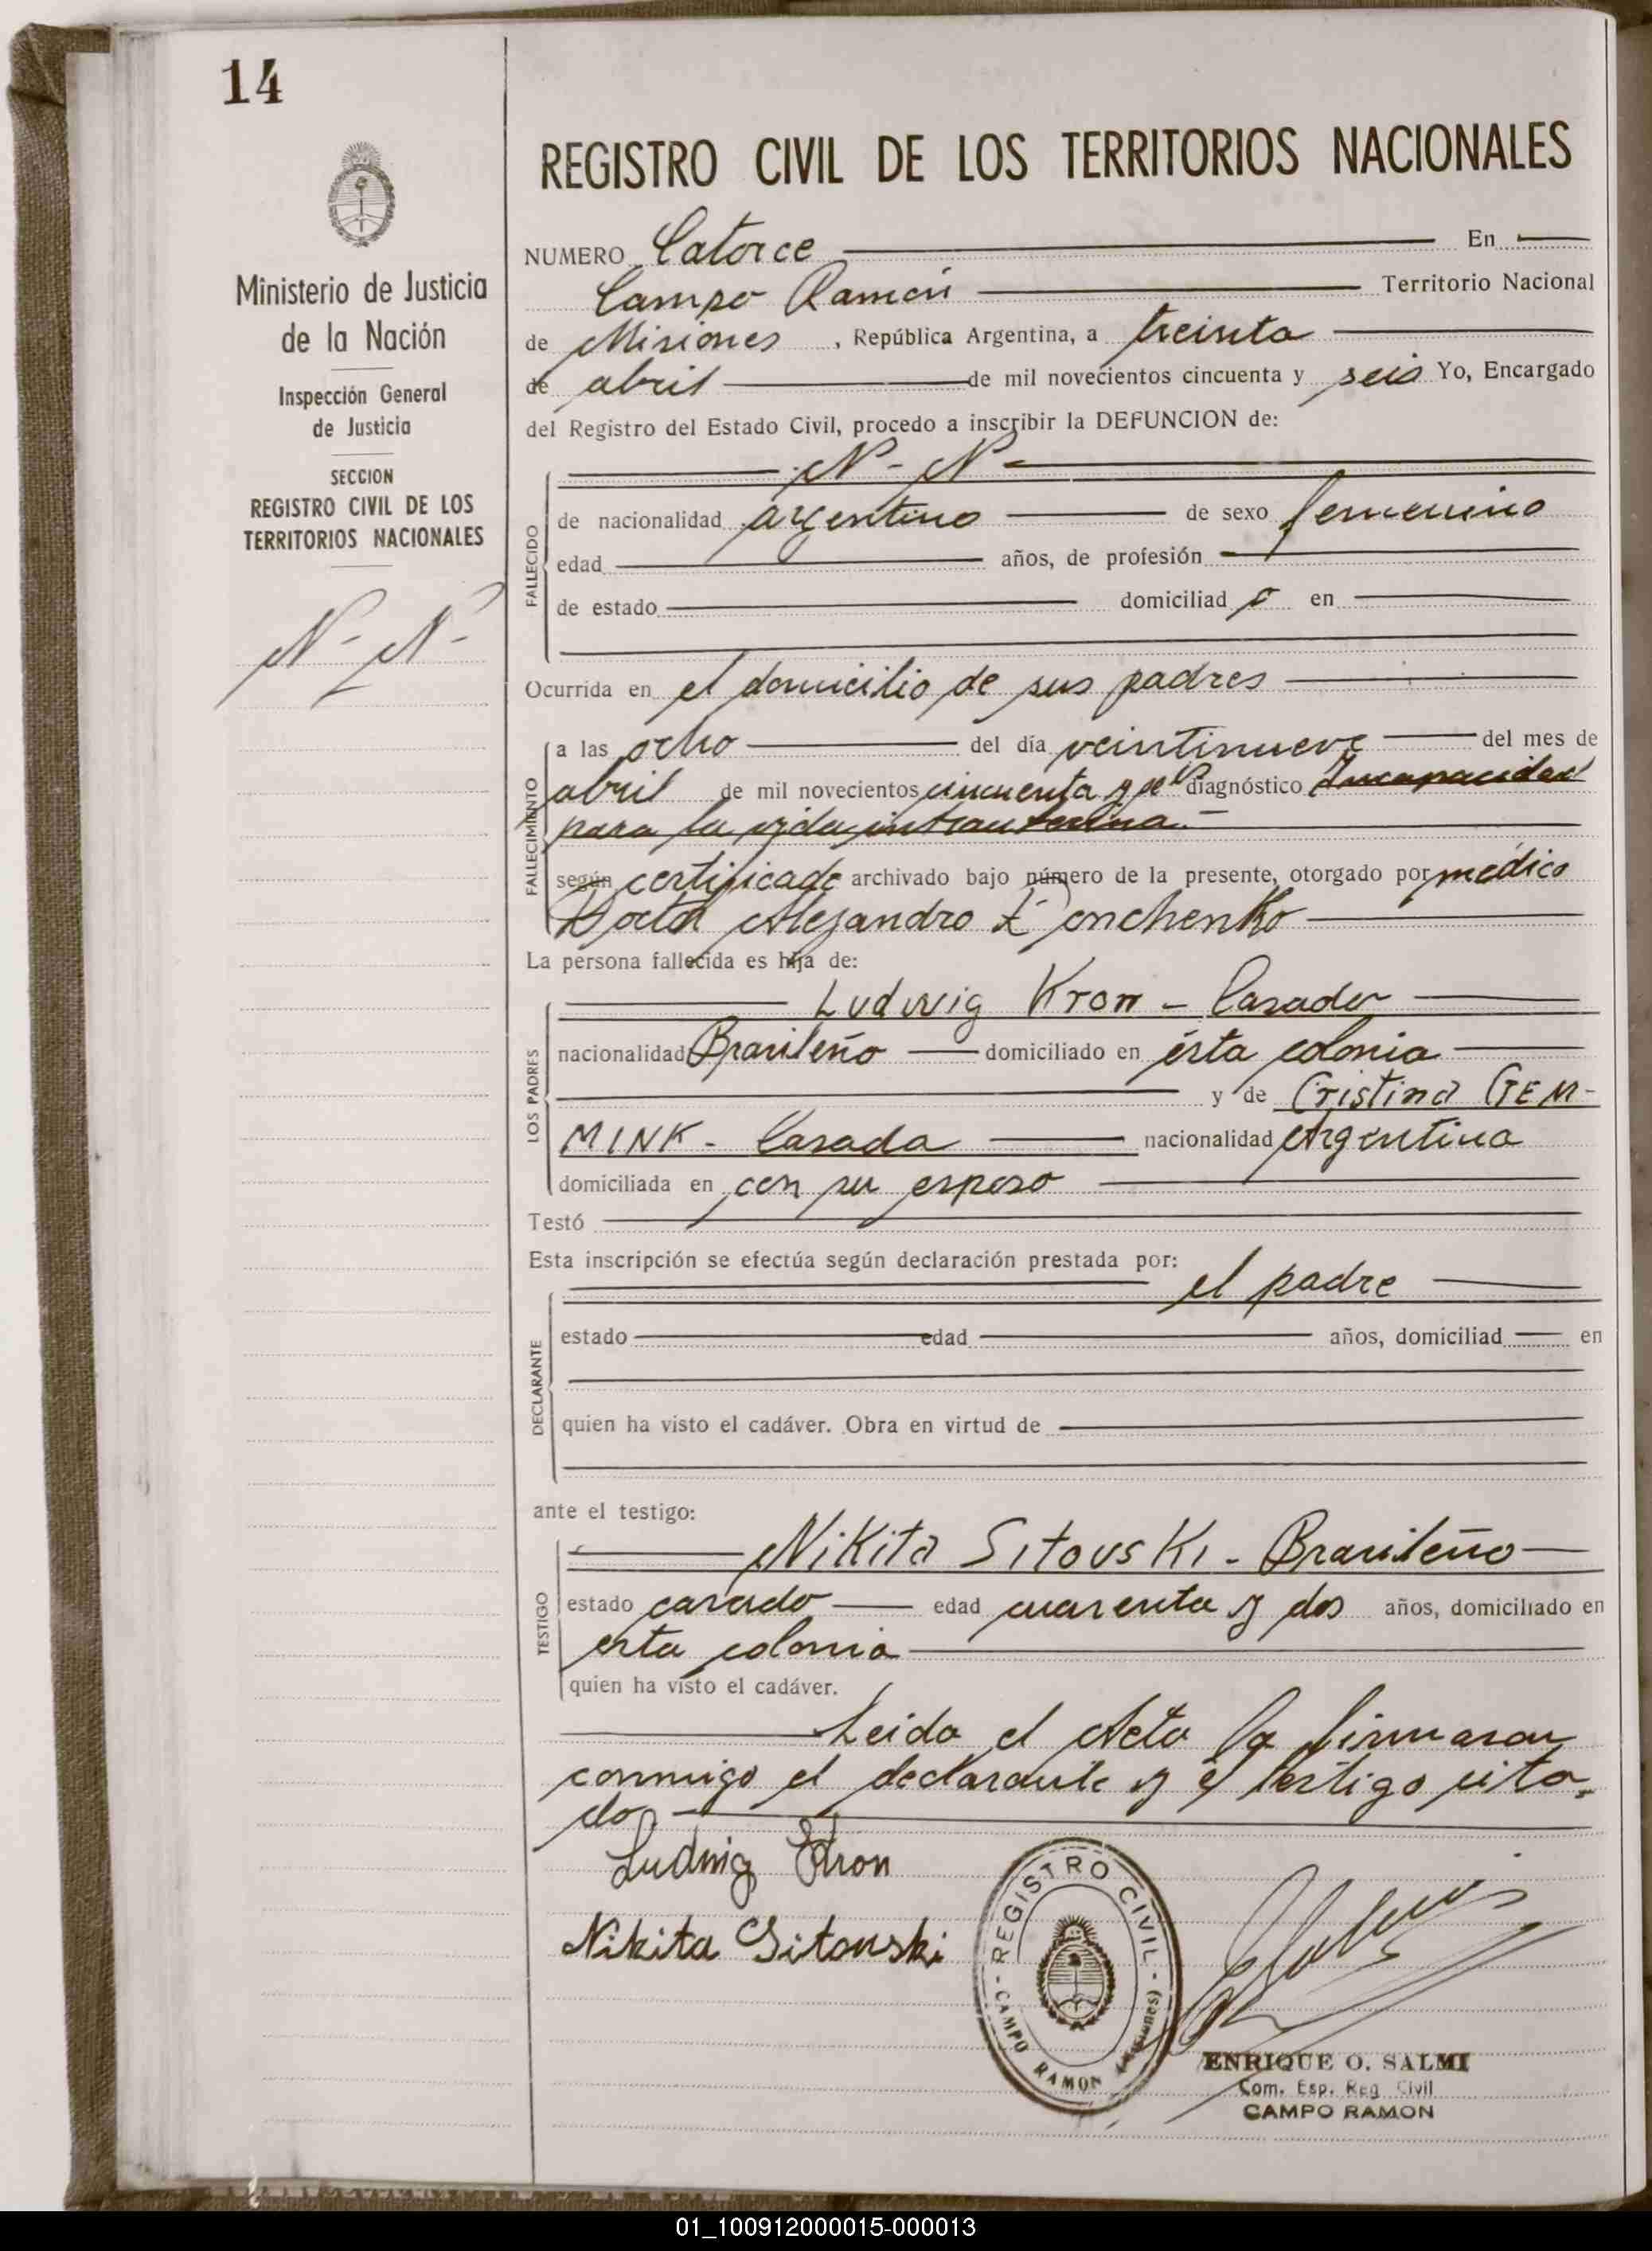 14
Ministerio de Justicia
de la Nación
Inspección General
de Justicia
SECCION
REGISTRO CIVIL DE LOS
TERRITORIOS NACIONALES
N- N-
REGISTRO CIVIL DE LOS TERRITORIOS NACIONALES
NUMERO Catorce En
Campo Ramón Territorio Nacional
de Misiones, República Argentina, a treinta
de abril de mil novecientos cincuenta y seis Yo, Encargado
del Registro del Estado Civil, procedo a inscribir la DEFUNCION de:
N- N-
FALLECIDO
de nacionalidad argentino de sexo femenino
edad años, de profesión
de estado domiciliad o en
Ocurrida en el domicilio de sus padres
FALLECIMIENTO
a las ocho del día veintinueve del mes de
abril de mil novecientos cincuenta y diagnóstico Incapacidad
para la vida intrauterina.-
según certificado archivado bajo número de la presente, otorgado por médico
Doctor Alejandro
La persona fallecida es hija de:
LOS PADRES
Ludwig Kron - Casado
nacionalidad Brasileño domiciliado en ésta colonia
y de Cristina GEM-
MINK - Casada nacionalidad Argentina
domiciliada en con su esposo
Testó
Esta inscripción se efectúa según declaración prestada por:
el padre
DECLARANTE
estado edad años, domiciliad en
quien ha visto el cadáver. Obra en virtud de
ante el testigo:
TESTIGO
Nikita Sitovski - Brasileño
estado casado edad cuarenta y dos años, domiciliado en
esta colonia
quien ha visto el cadáver.
Leida el Acta la firmaron
conmigo el declarante y el testigo cita-
do
Ludwig Kron
Nikita Sitouski
REGISTRO CIVIL - CAMPO RAMON (Misiones)
ENRIQUE O. SALMI
Com. Esp. Reg Civil
CAMPO RAMON
01_100912000015-000013